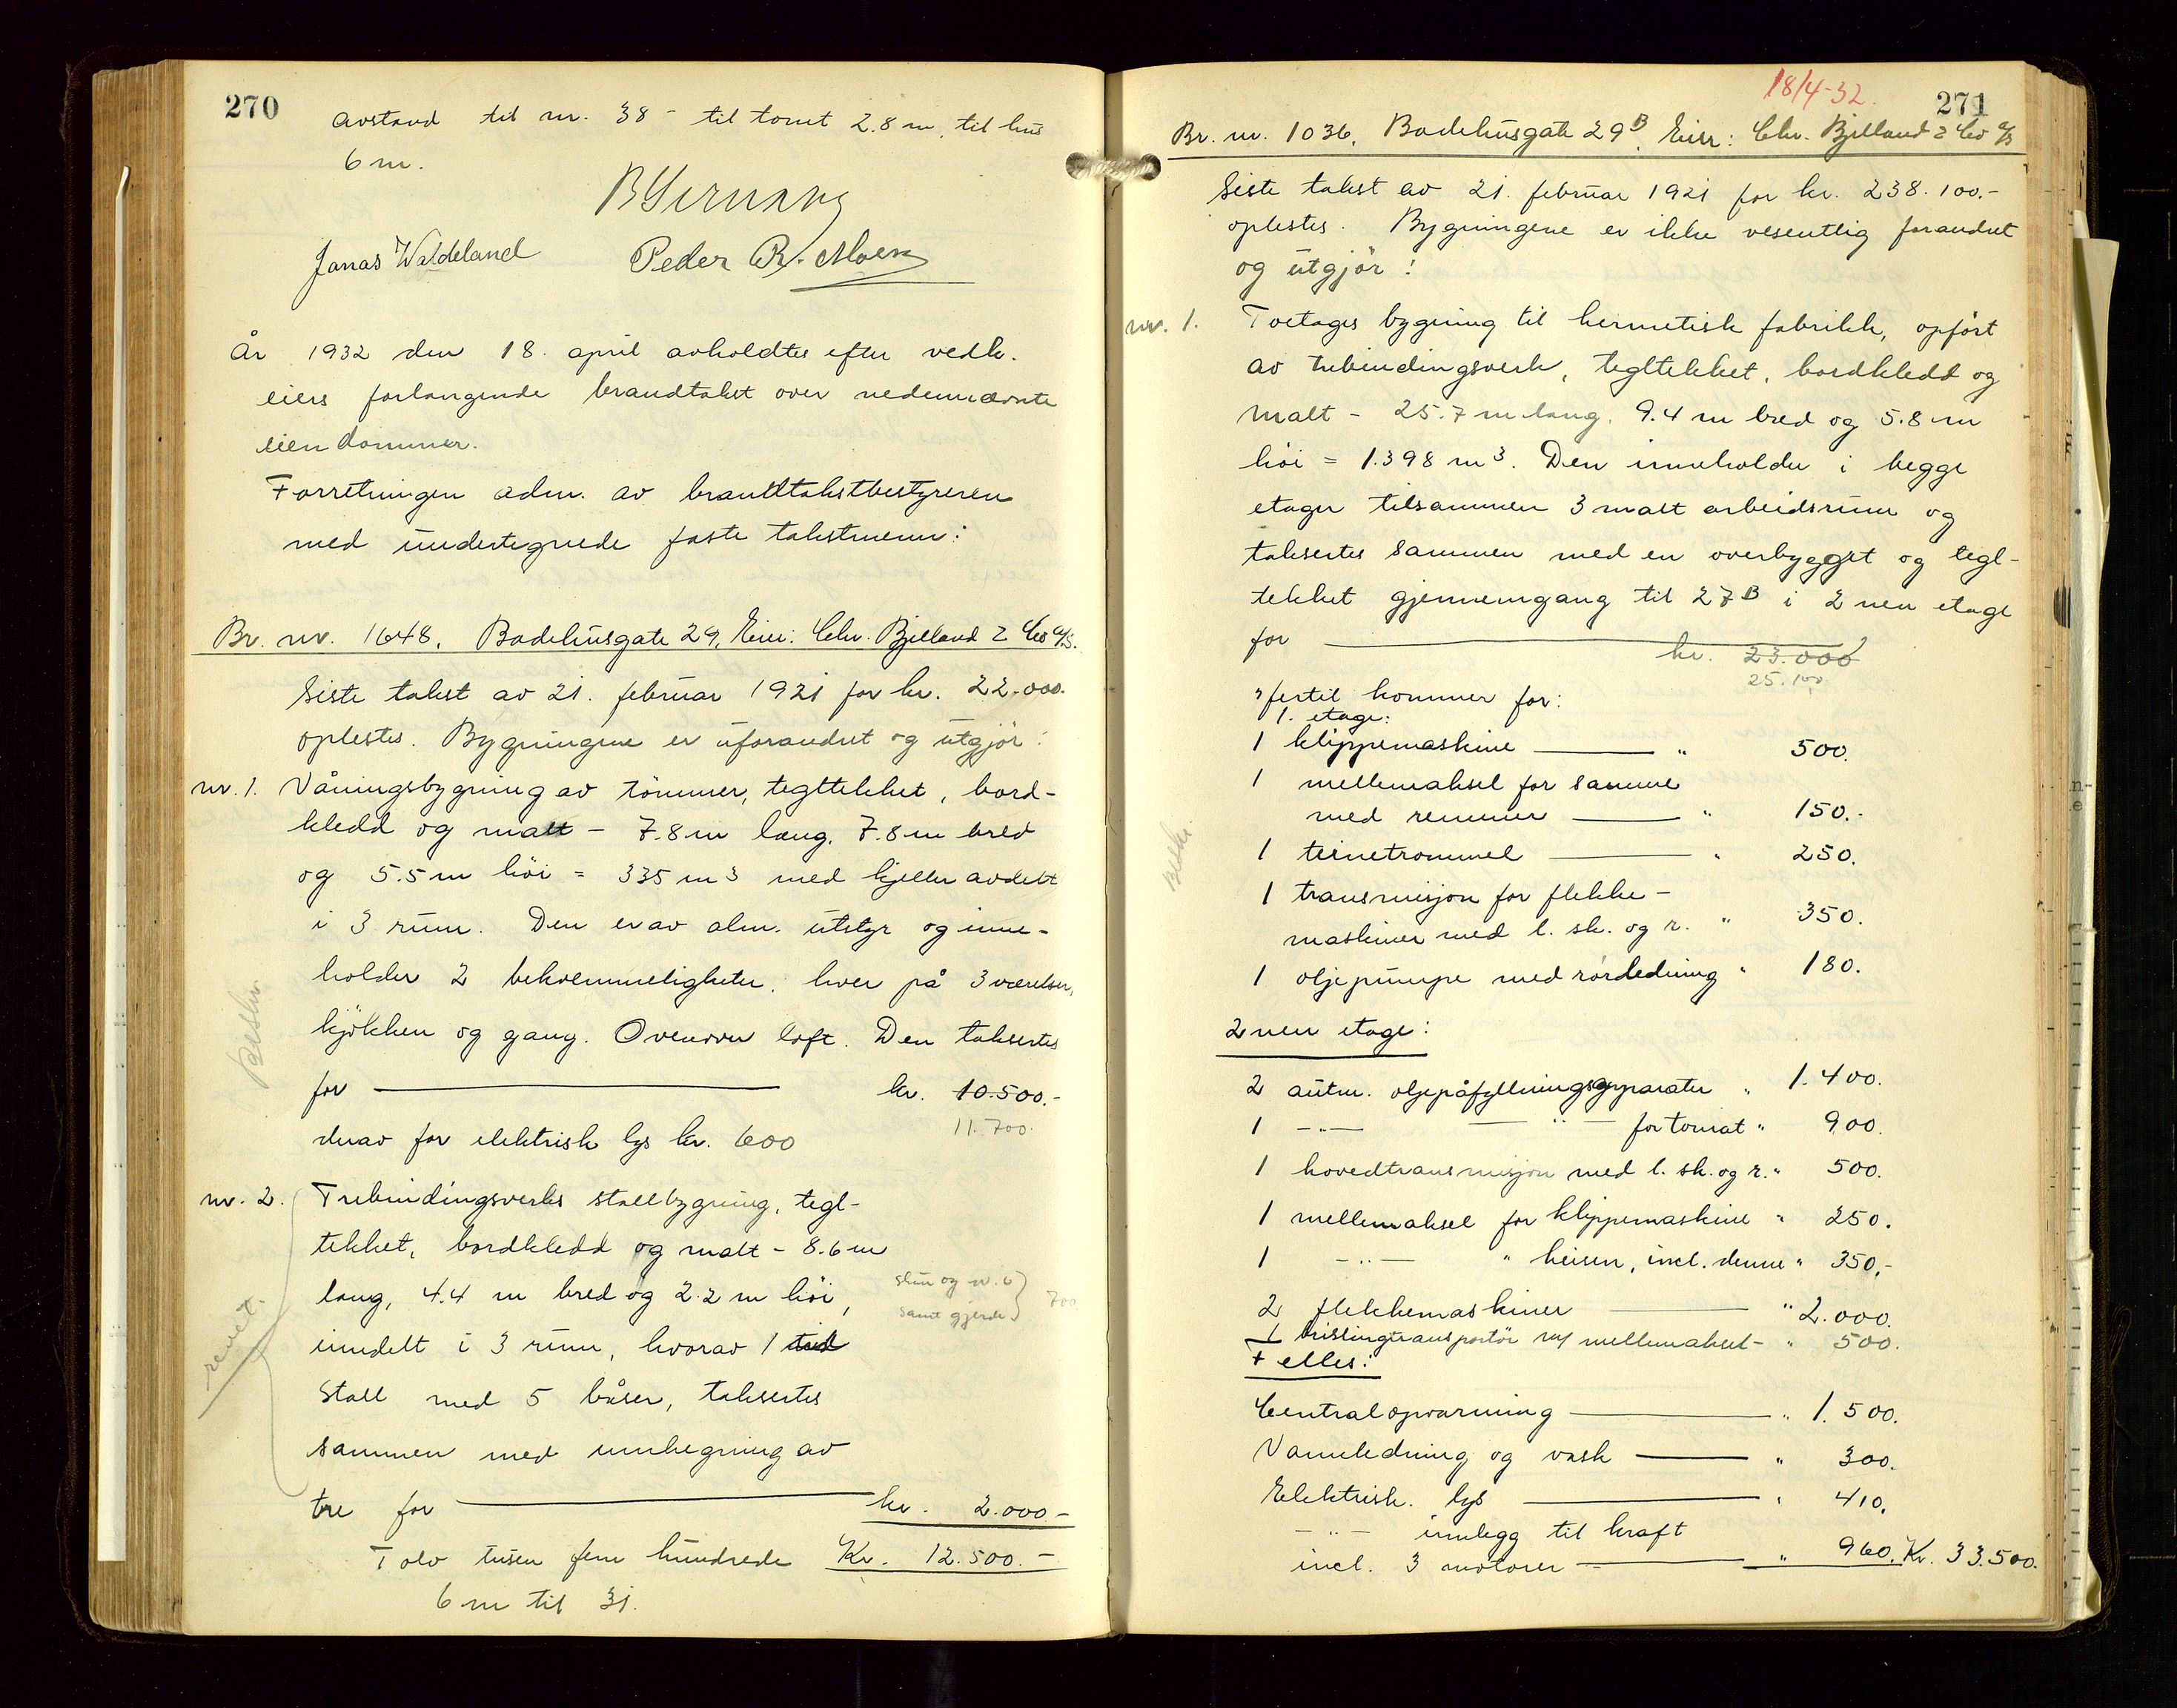 270
avstand til nr. 38 - til tomt 2.8 m, til hus
6 m.
Jonas Waldeland Peder R. Moen
År 1932 den 18. april avholdtes efter vedk.
eiers forlangende brandtakst over nedennævnte
eiendommer.
Forretningen adm. av brandtakstbestyreren
med undertegnede faste takstmenn:
Br. nr. 1648. Badehusgate 29. Eier: Chr. Bjelland & Co a/s.
Siste takst av 21. februar 1921 for kr. 22.000.
oplestes. Bygningene er uforandret og utgjör:
nr. 1. Våningsbygning av tömmer, tegltekket, bord-
kledd og malt - 7.8 m lang, 7.8 m bred
og 5.5 m höi = 335 m3 med kjeller avdelt
i 3 rum. Den er av alm. utstyr og inne-
holder 2 bekvemmeligheter, hver på 3 værelser,
kjökken og gang. Ovenover loft. Den taksertes
for kr. 10.500.-
11.700.
derav for elektrisk lys kr. 600
nr. 2. Trebindingsverks stallbygning, tegl-
tekket, bordkledd og malt - 8.6 m
lang, 4.4 m bred og 2.2 m höi,
skur og nr. 6
samt gjerde } 700
inndelt i 3 rum, hvorav 1 til
stall med 5 båser, taksertes
sammen med innhegning av
tre for kr. 2.000-
revet.
Tolv tusen fem hundrede Kr. 12.500.-
6 m til 31.
18/4-32.
271
Br. nr. 1036. Badehusgate 29B. Eier: Chr. Bjelland & Co a/s
Siste takst av 21. februar 1921 for kr. 238.100.-
oplestes. Bygningene er ikke vesentlig forandret
og utgjör:
nr. 1. Toetages bygning til hermetisk fabrikk, opfört
av trebindingsverk, tegltekket, bordkledd og
malt - 25.7 m lang, 9.4 m bred og 5.8 m
höi = 1.398 m3. Den inneholder i begge
etager tilsammen 3 malt arbeidsrum og
taksertes sammen med en overbygget og tegl-
tekket gjennemgang til 27B i 2nen etage
for kr. 23.000
25.100
Hertil kommer for:
1. etage:
1 klippemaskine " 500.
1 mellemaksel for samme
med remmer " 150.-
1 teinetrommel " 250.
1 transmisjon for flekke-
maskiner med l. sk. og r. " 350.
1 oljepumpe med rörledning " 180.
2nen etage:
2 autm. oljepåfyllningsapparater " 1.400.
1 -"- -"- for tomat " 900.
1 hovedtransmisjon med l. sk. og r. " 500.
1 mellemaksel for klippemaskine " 250.
1 -"- " heisen, incl. denne " 350.-
2 flekkemaskiner " 2.000.
1 brislingtransportör m/ mellemaksel - " 500.
Felles:
Centralopvarming " 1.500.
Vannledning og vask " 300.
Elektrisk lys " 410.
-"- innlegg til kraft
incl. 3 motorer " 960. Kr. 33.500.